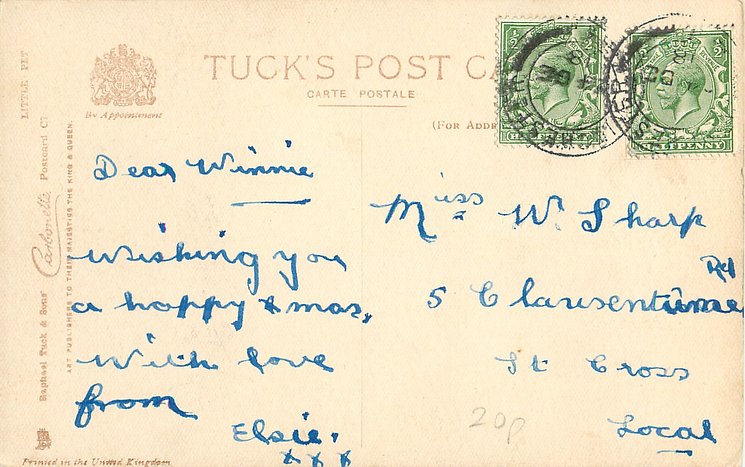 TUCK'S POST CA
CARTE POSTALE
(FOR ADDR
By Appointment
LITTLE PET
Raphael Tuck & Sons' Carbonette Postcard
ART PUBLISHERS TO THEIR MAJESTIES THE KING & QUEEN.
Printed in the United Kingdom
Dear Winnie
Wishing you
a happy xmas,
With love
from
Elsie.
x x x
Miss W. Sharp
5 Clausentume Rd
St Cross
Local
20p